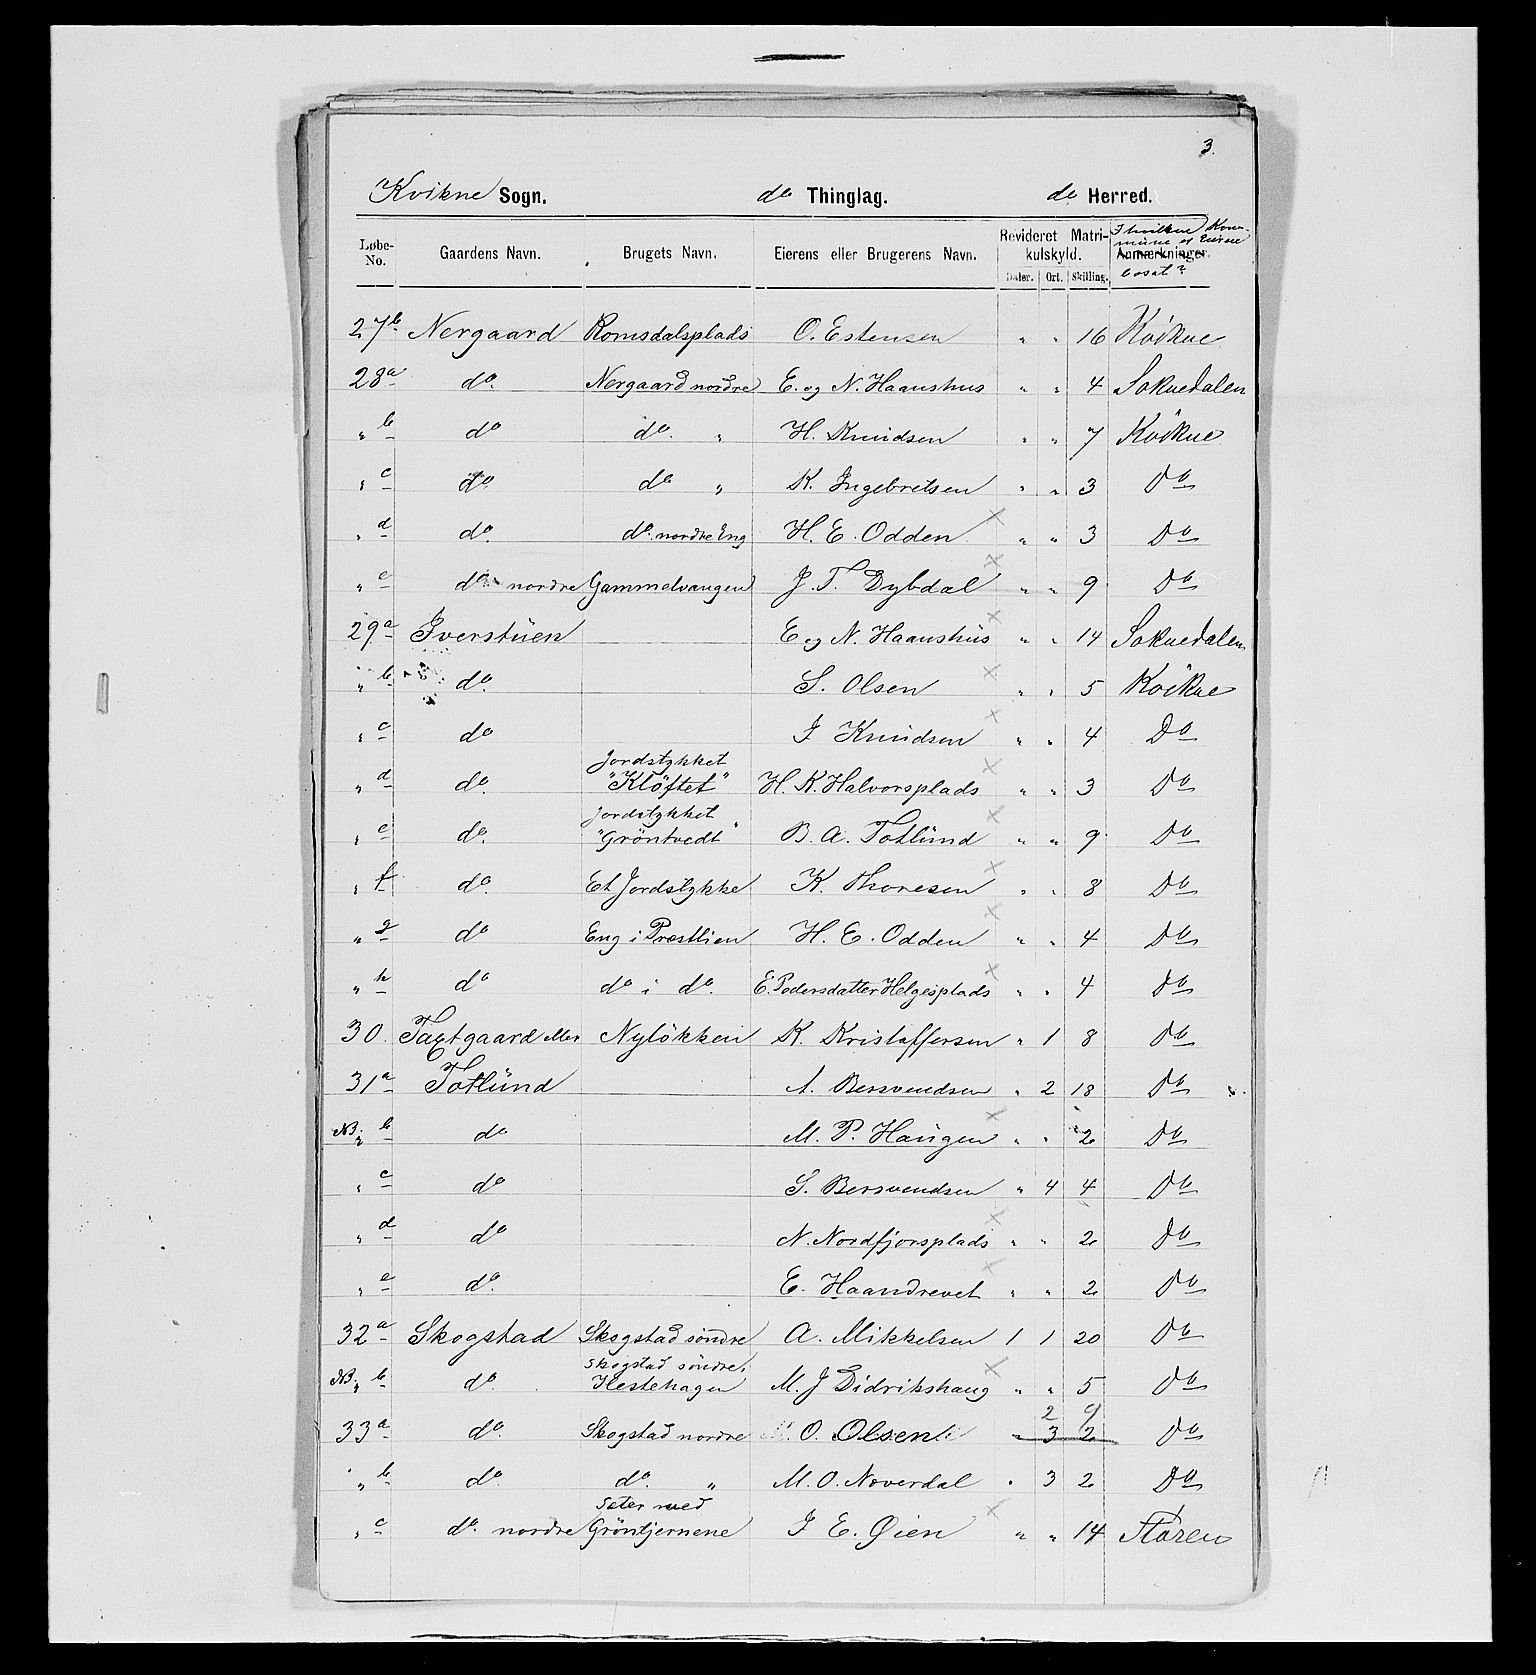 3.
Kvikne Sogn. do Thinglag. do Herred.
Løbe-No. Gaardens Navn. Brugets Navn. Eierens eller Brugerens Navn. Revideret Matrikulskyld. Daler. Ort. Skilling. Anmærkninger. I hvilken Kommune er Eieren bosat?
27 b Nergaard Romsdalsplads O. Estensen " " 16 Kvikne
28 a do. Nergaard nordre E. og N. Haanshus " " 4 Soknedalen
" b do do. " H. Knudsen " " 7 Kvikne
" c do do " K. Ingebretsen " " 3 Do
" d do. do. nordre Eng H. E. Odden " " 3 Do
" e do. nordre Gammelvangen J. T. Dybdal " " 9 Do
29 a Iverstuen E og N. Haanshus " " 14 Soknedalen
" b do. S. Olsen " " 5 Kvikne
" c do I Knudsen " " 4 Do
" d do. Jordstykket "Kløftet" H. K. Halvorsplads " " 3 Do
" e do. Jordstykket "Gröntvedt" B. A. Totlund " " 9 Do
" f do. Et Jordstykke K. Thoresen " " 8 Do
" g do Eng i Præstlien H. E. Odden " " 4 Do
" h do do i do. E. Pedersdatter Helgesplads " " 4 Do
30. Taxtgaard eller Nylökken K. Kristoffersen " 1 8 Do
31 a Totlund A. Bersvendsen " 2 18 Do
NB. " b do M. P. Haugen " " 2 Do
" c do S. Bersvendsen " 4 4 Do
" d do N. Nordfjorsplads " " 2 Do
" e do. E. Haandrevet " " 2 Do
32 a Skogstad Skogstad söndre A. Mikkelsen 1 1 20 Do
NB. " b do. Skogstad söndre, Hestehagen M. J Didrikshaug " " 5 Do
2 9
33 a do. Skogstad nordre O. Olsen " 3 2 Do
" b do. do. " M. O. Noverdal " 3 2 Do
" c do. nordre Sæter med Gröntjernene I E. Øien " " 14 Støren